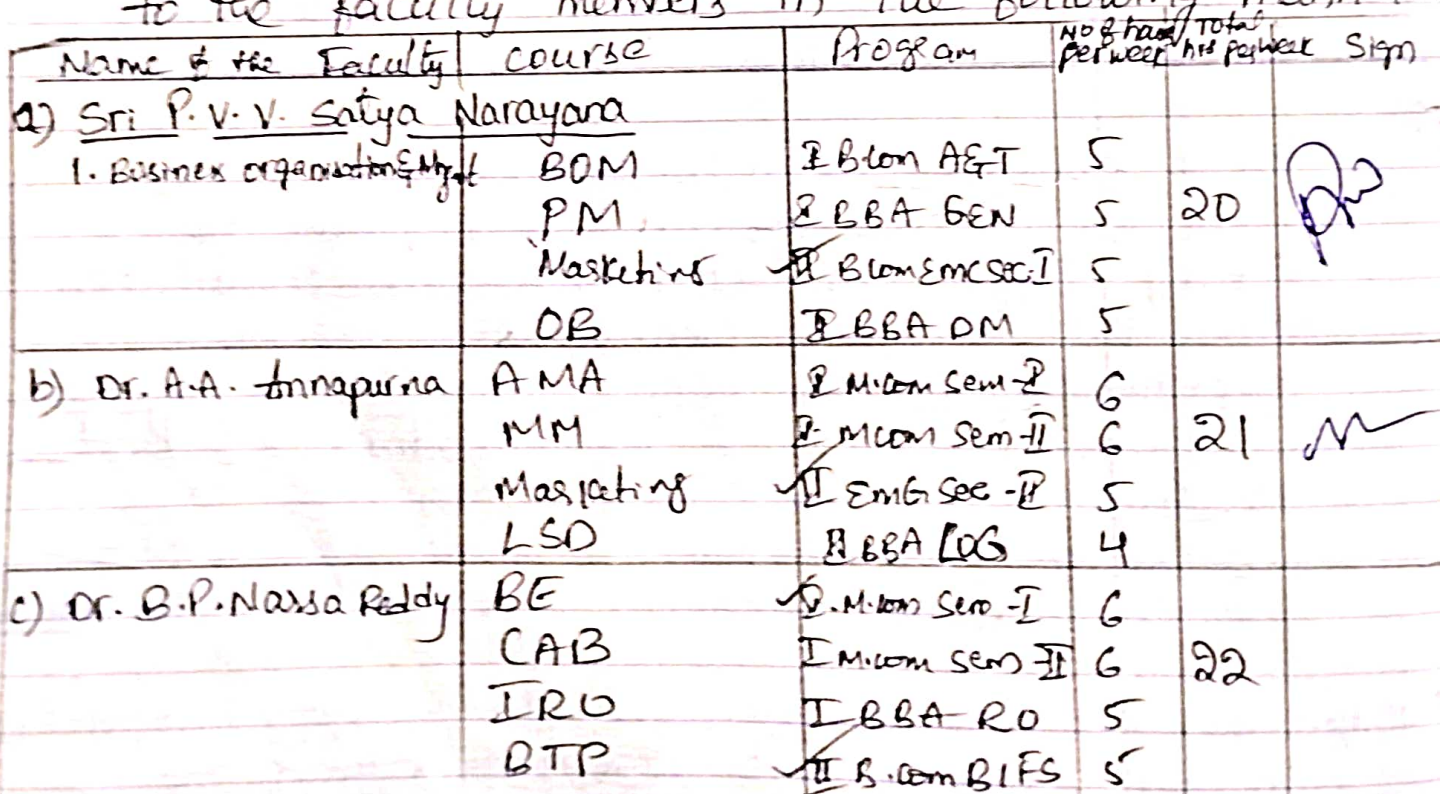 to the faculty members in the following
Name of the Faculty course Program No of hours per week Total hrs per week Sign
a) Sri P. V. V. Satya Narayana
1. Business organisation & Mgt BOM I B.Com A&T 5
PM I BBA GEN 5 20
Marketing II B Com EMG Sec-I 5
OB I BBA DM 5
b) Dr. A.A. Annapurna AMA I M.com Sem-I 6
MM I Mcom Sem-II 6 21
Marketing II EMG Sec-II 5
LSD II BBA LOG 4
c) Dr. B.P. Narsa Reddy BE I M.com Sem-I 6
CAB I M.com Sem-II 6 22
IRO I BBA RO 5
BTP II B.com BIFS 5